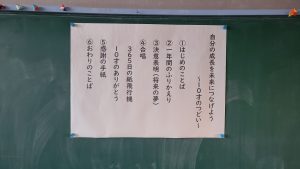 自分の成長を未来につなげよう
～１０才のつどい～
①はじめのことば
②一年間のふりかえり
③決意表明(将来の夢)
④合唱
３６５日の紙飛行機
１０才のありがとう
⑤感謝の手紙
⑥おわりのことば